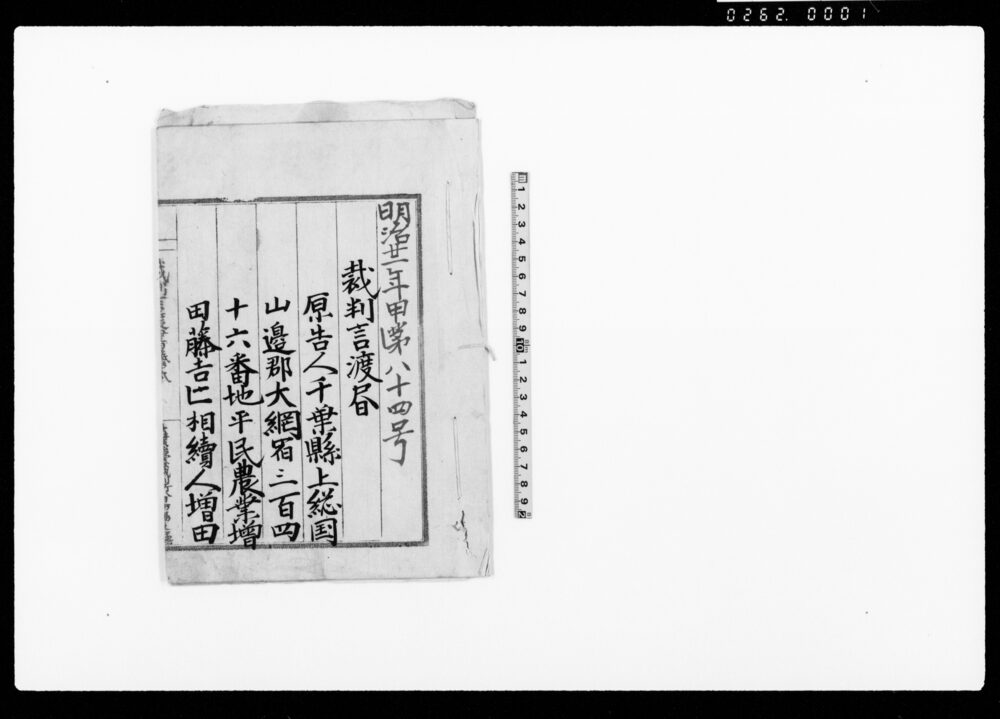 0262.0001
明治廿一年甲第八十四号
裁判言渡書
原告人千葉縣上総国
山邊郡大網宿三百四
十六番地平民農業増
田藤吉亡相續人増田
1 2 3 4 5 6 7 8 9 10 1 2 3 4 5 6 7 8 9